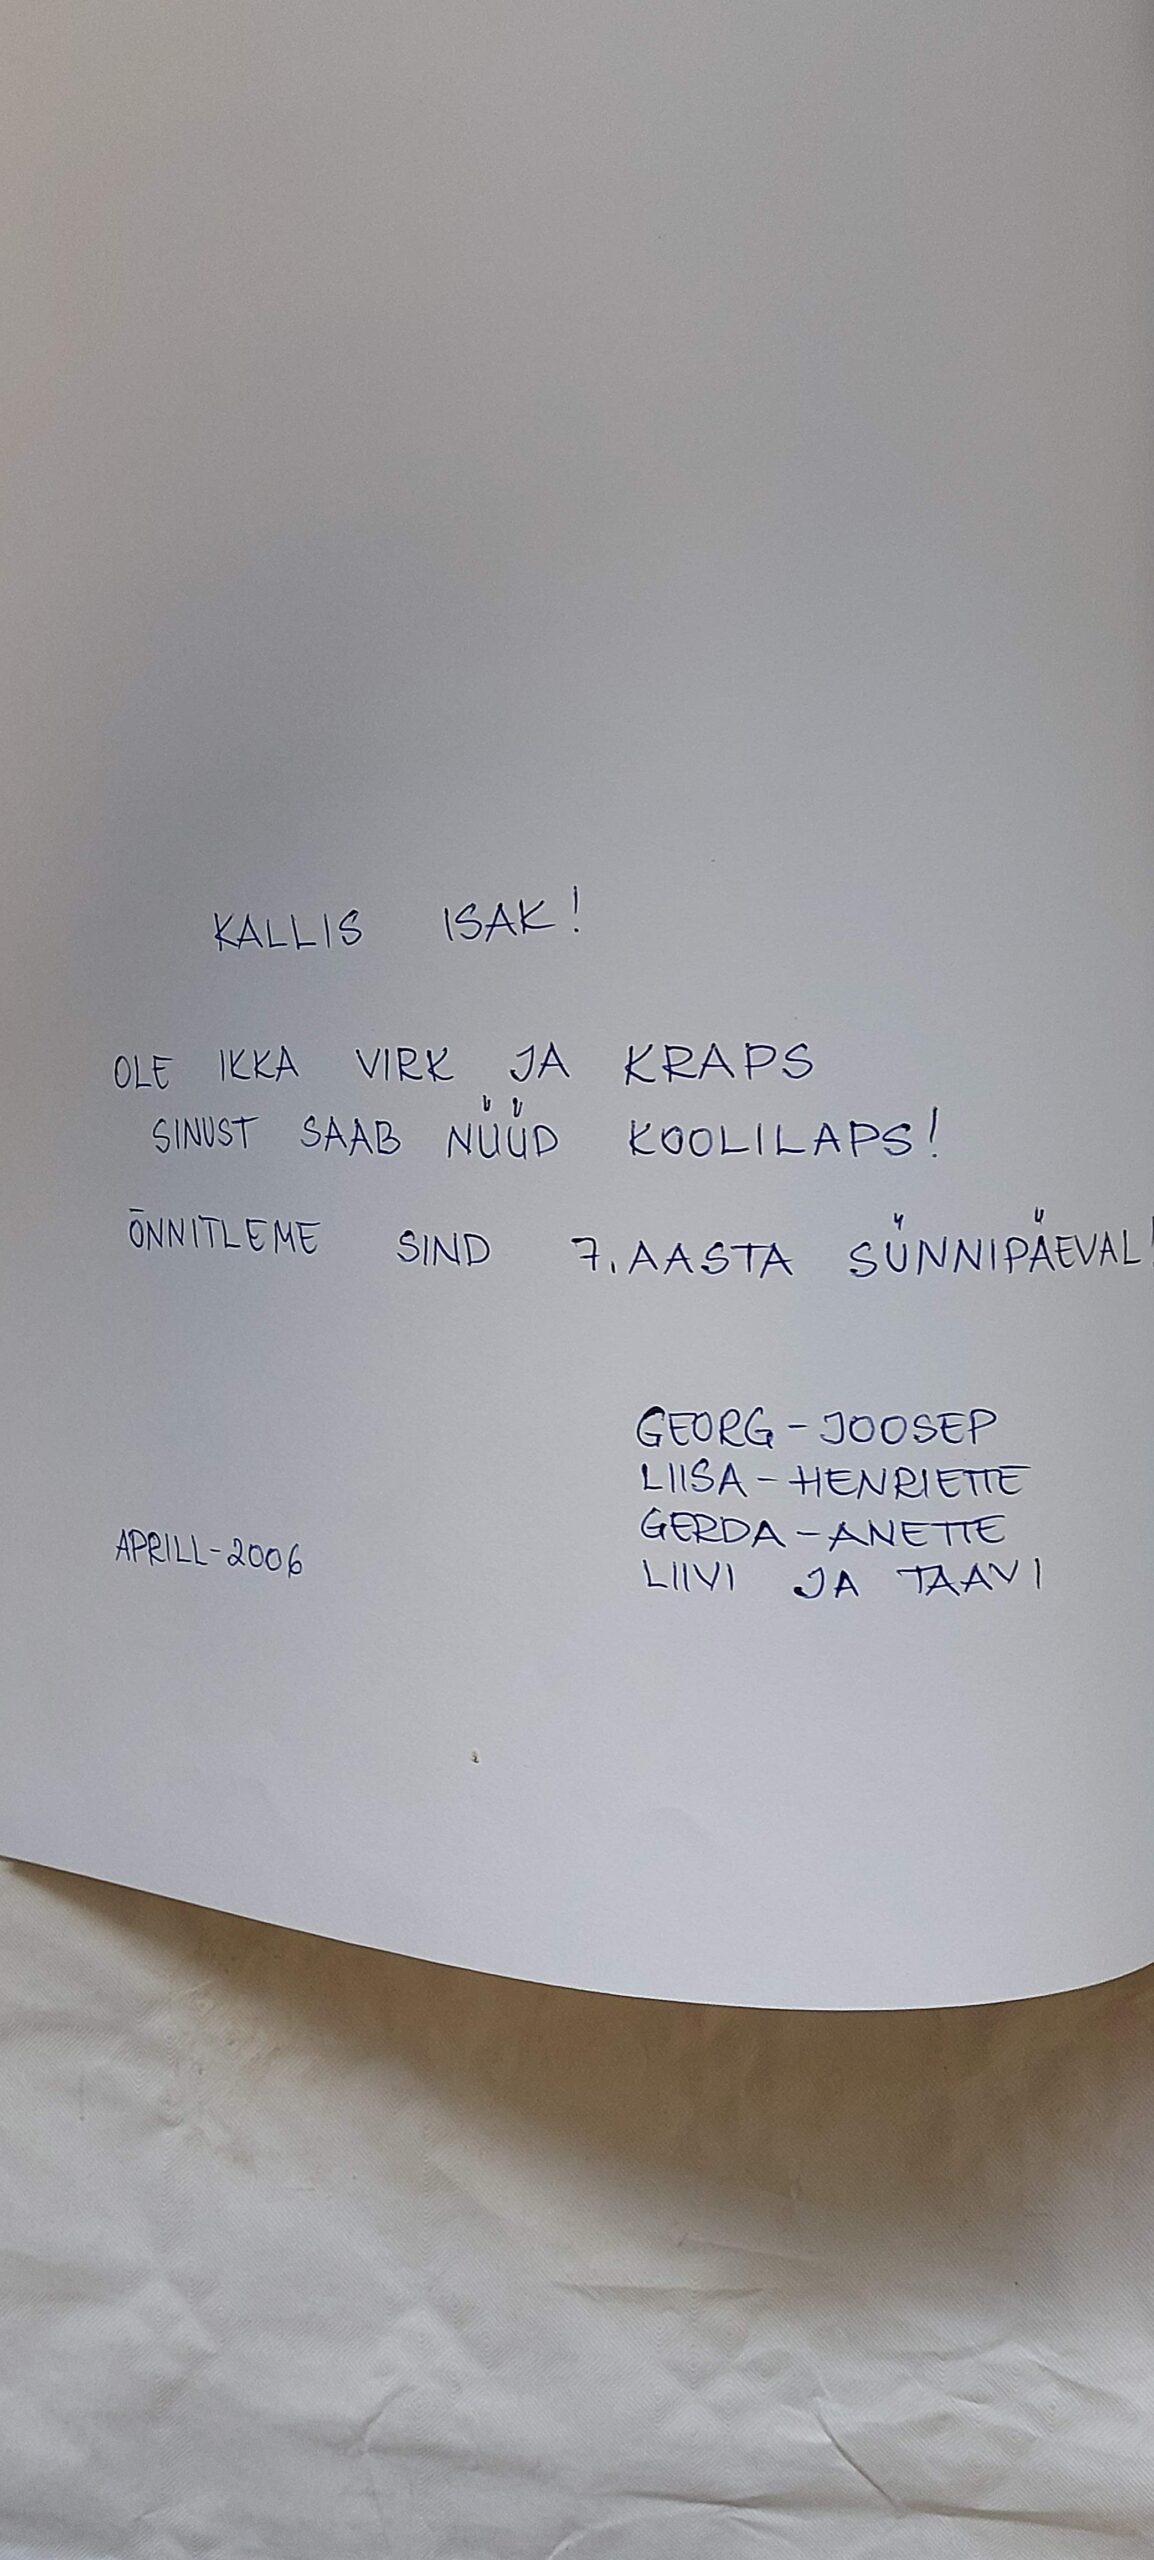 KALLIS ISAK!
OLE IKKA VIRK JA KRAPS
SINUST SAAB NÜÜD KOOLILAPS!
ÕNNITLEME SIND 7. AASTA SÜNNIPÄEVAL!
GEORG-JOOSEP
LIISA-HENRIETTE
GERDA-ANETTE
LIIVI JA TAAVI
APRILL-2006